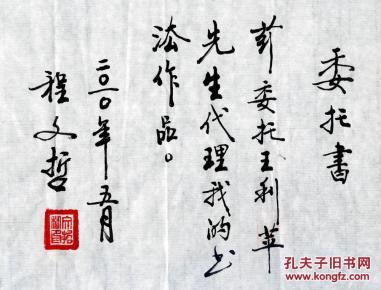 委托書
茲委托王利苹
先生代理我的书
法作品。
二〇一〇年五月
程文哲
孔夫子旧书网